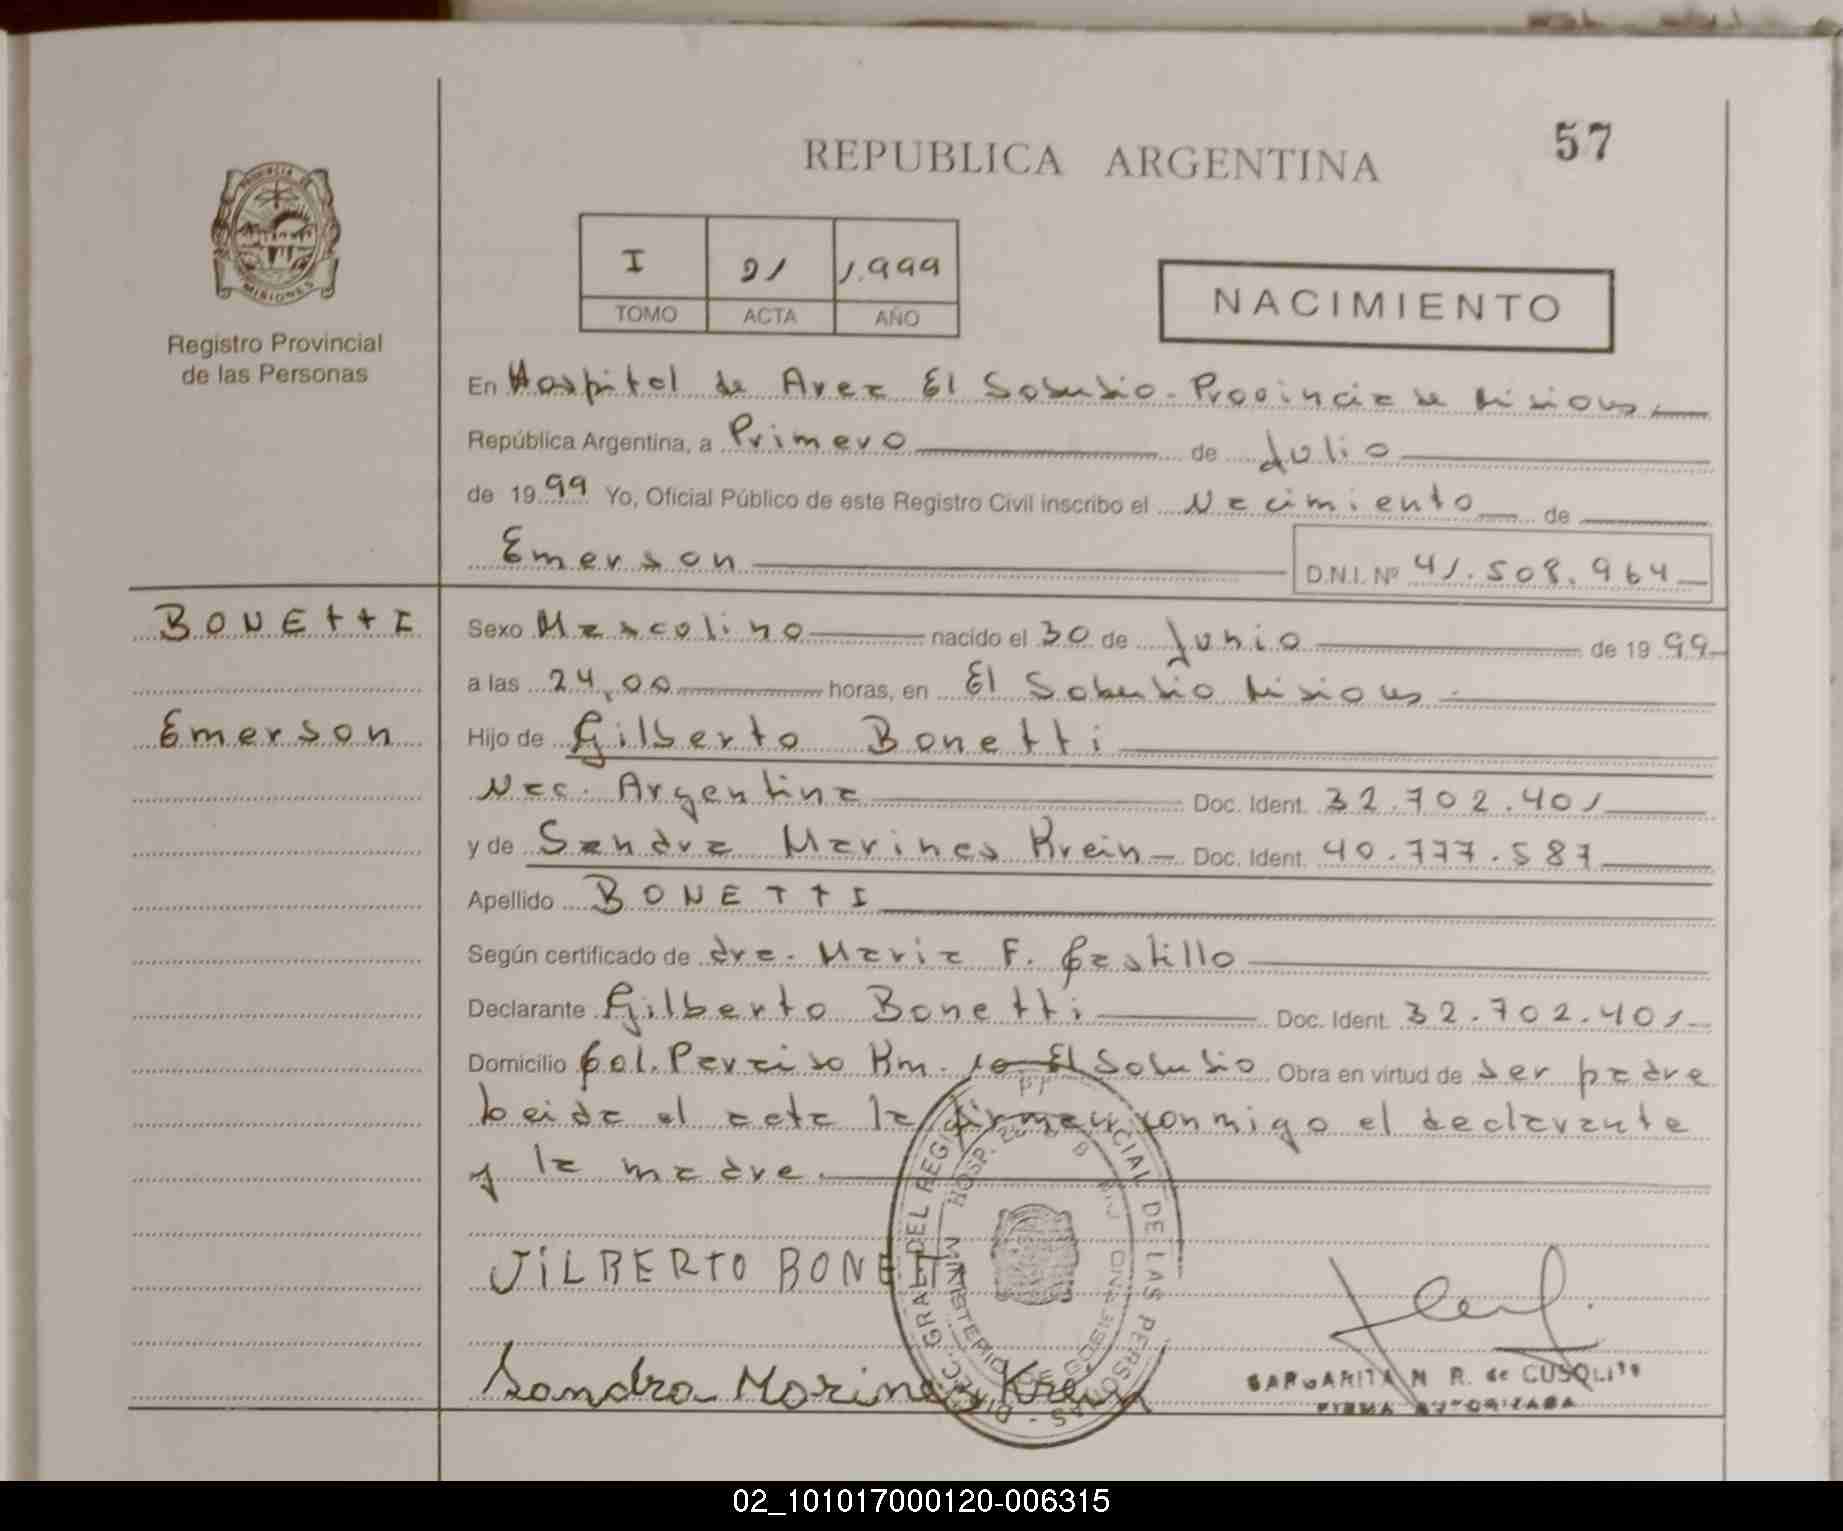 57
REPUBLICA ARGENTINA
PROVINCIA DE
MISIONES
Registro Provincial
de las Personas
I 21 1.999
TOMO ACTA AÑO
NACIMIENTO
En Hospital de Area El Soberbio - Provincia de Misiones.
República Argentina, a Primero de Julio
de 1999 Yo, Oficial Público de este Registro Civil inscribo el Nacimiento de
Emerson D.N.I. Nº 41.508.964
BONETTI Sexo Masculino nacido el 30 de Junio de 1999
a las 24,00 horas, en El Soberbio Misiones.
Emerson Hijo de Gilberto Bonetti
Nac. Argentina Doc. Ident. 32.702.401
y de Sandra Marines Krein Doc. Ident. 40.777.587
Apellido BONETTI
Según certificado de dra. Maria F. Castillo
Declarante Gilberto Bonetti Doc. Ident. 32.702.401
Domicilio Col. Paraiso Km. 10 El Soberbio Obra en virtud de ser padre
Leida el acta la firman conmigo el declarante
y la madre.
JiLBERTO BONETTI
DIREC. GRAL DEL REGIS CIAL DE LAS PERSONAS
MINISTERIO DE GOBIERNO
HOSP.
Sandra Marines Krein
MARGARITA N R. de CUSQLITO
FIRMA AUTORIZADA
02_101017000120-006315